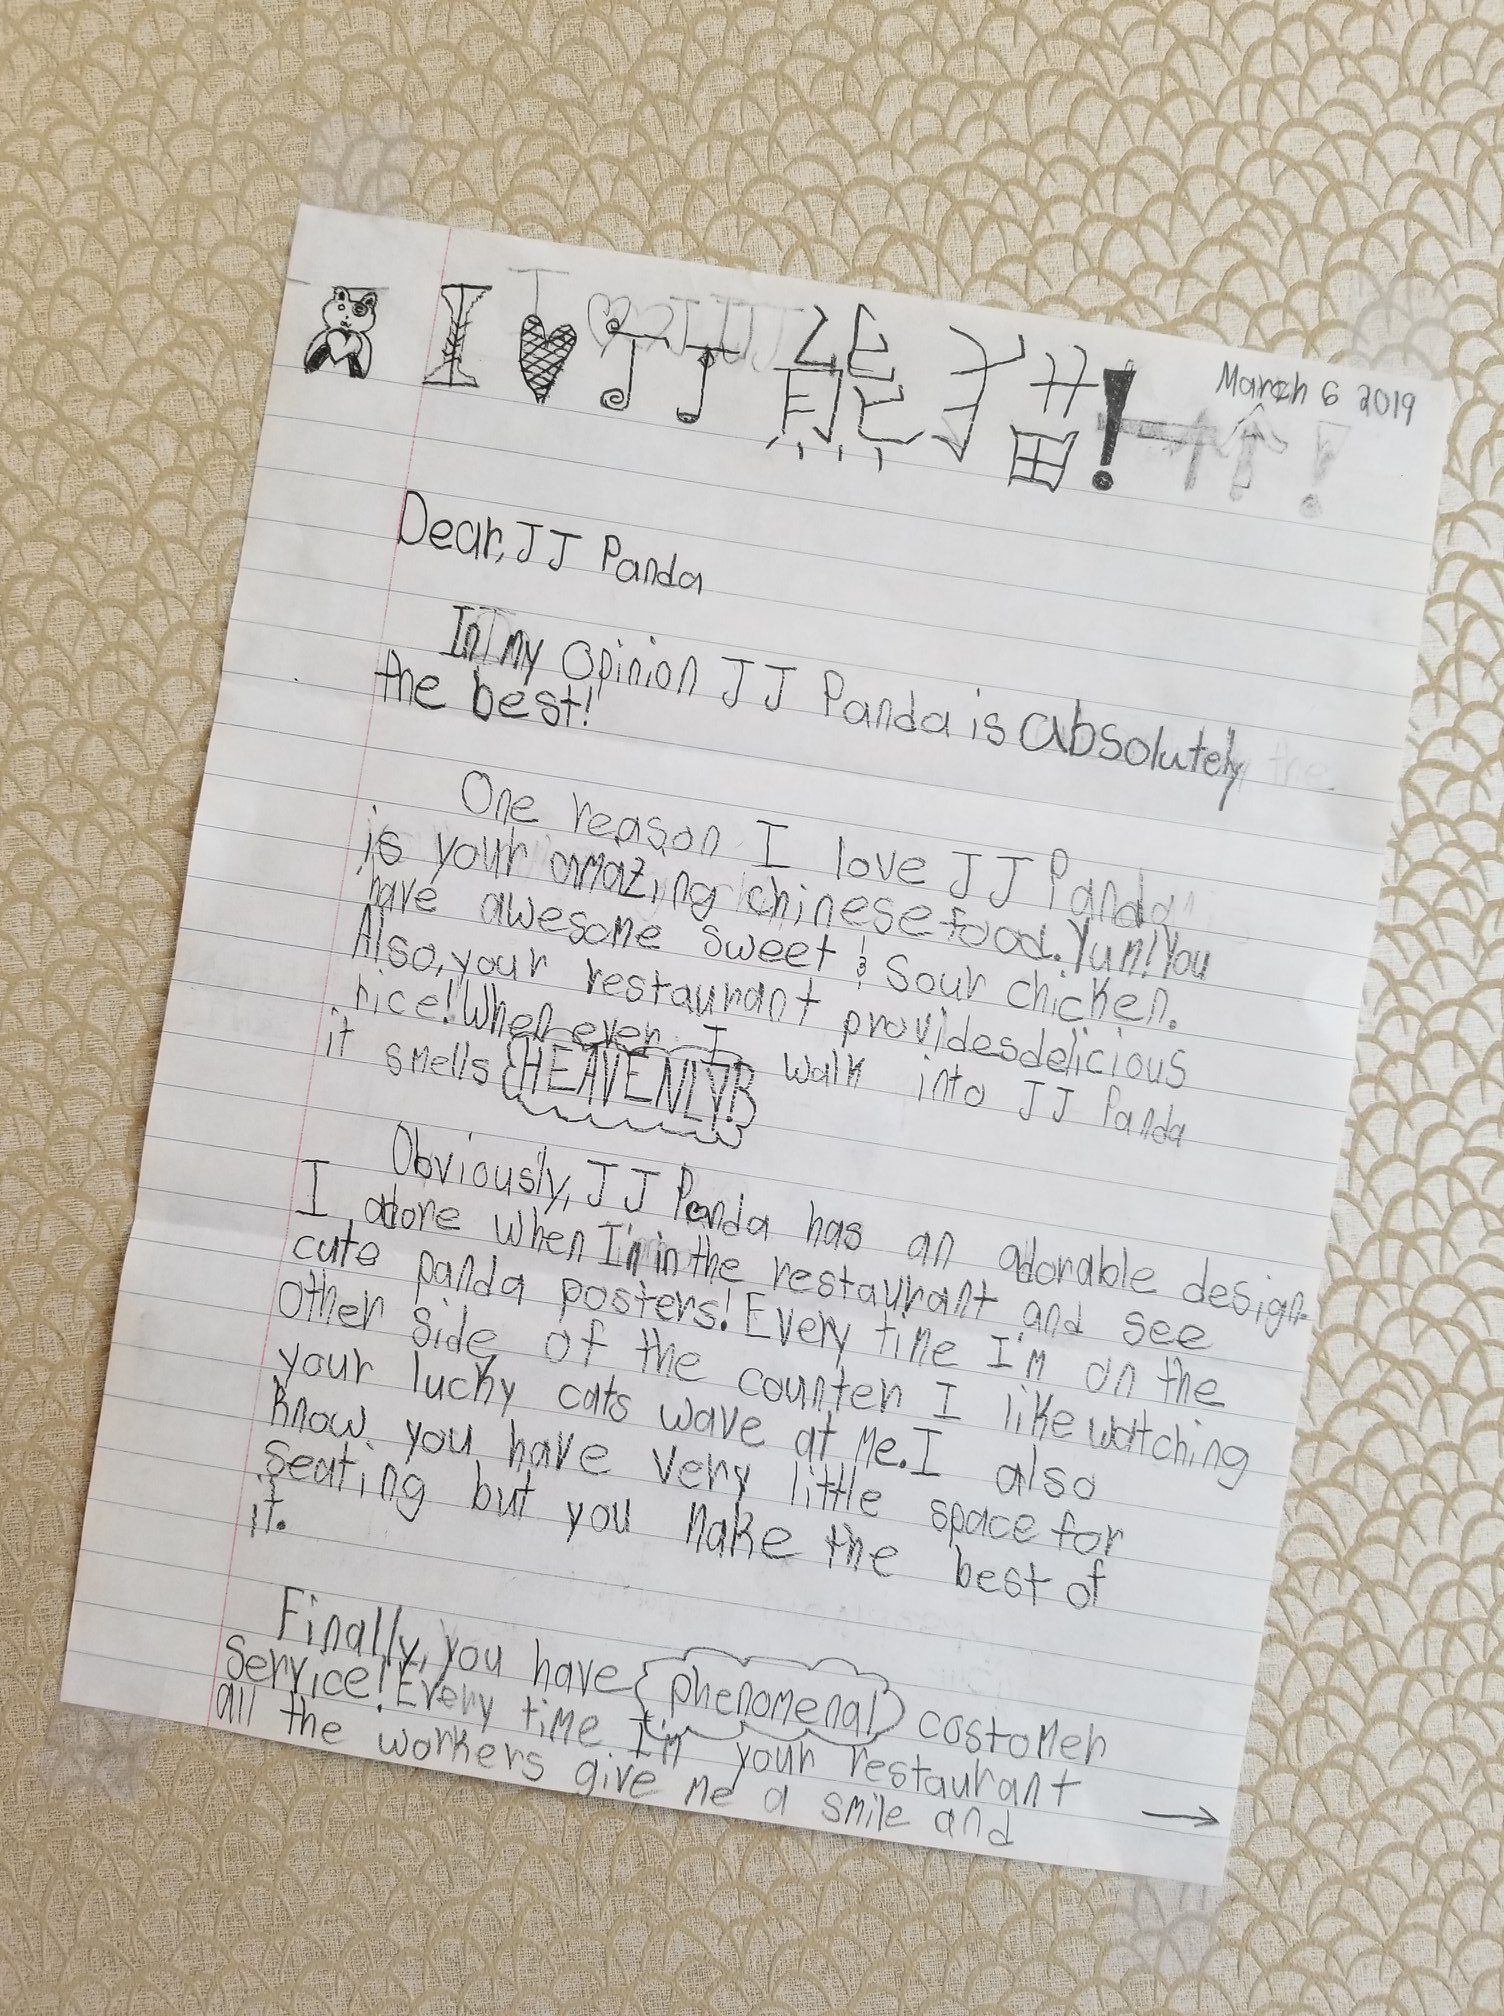 I ♥ JJ 熊猫!
March 6 2019
Dear, JJ Panda
In my opinion JJ Panda is absolutely
the best!
One reason I love JJ Panda
is your amazing chinese food. Yum! You
have awesome sweet & sour chicken.
Also, your restaurant provides delicious
rice! When ever I walk into JJ Panda
it smells HEAVENLY!
Obviously, JJ Panda has an adorable design.
I adore when I'm in the restaurant and see
cute panda posters! Every time I'm on the
other side of the counter I like watching
your lucky cats wave at me. I also
know you have very little space for
seating but you make the best of
it.
Finally, you have phenomenal costomer
service! Every time I'm your restaurant
all the workers give me a smile and
→